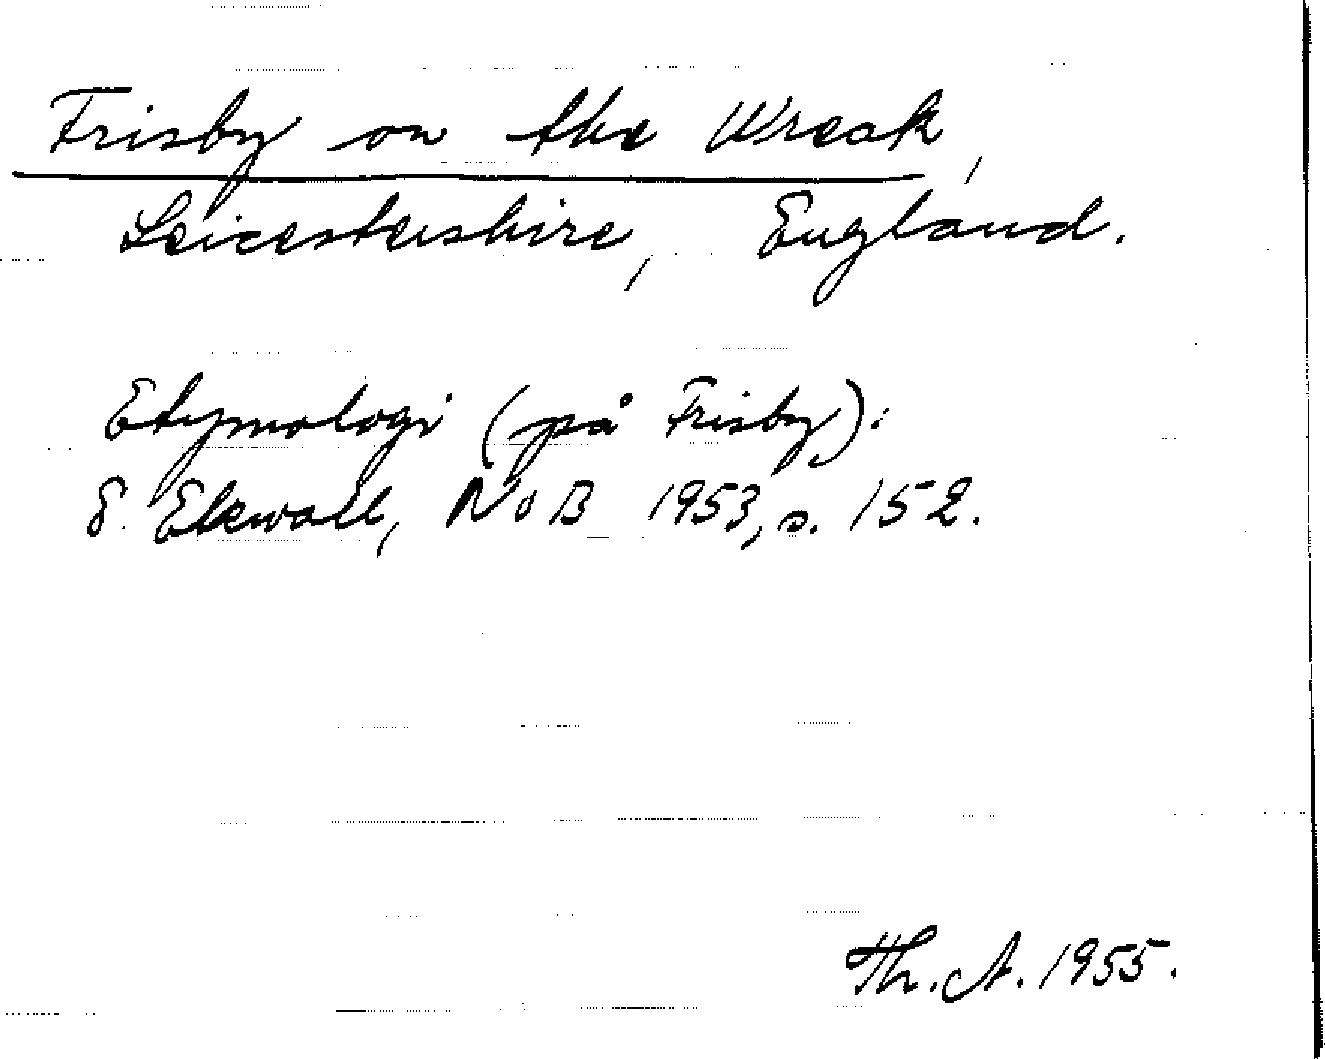 Frisby on the Wreak,
Leicestershire, England.
Etymologi (på Frisby):
E. Ekwall, NoB 1953, s. 152.
Th. A. 1955.